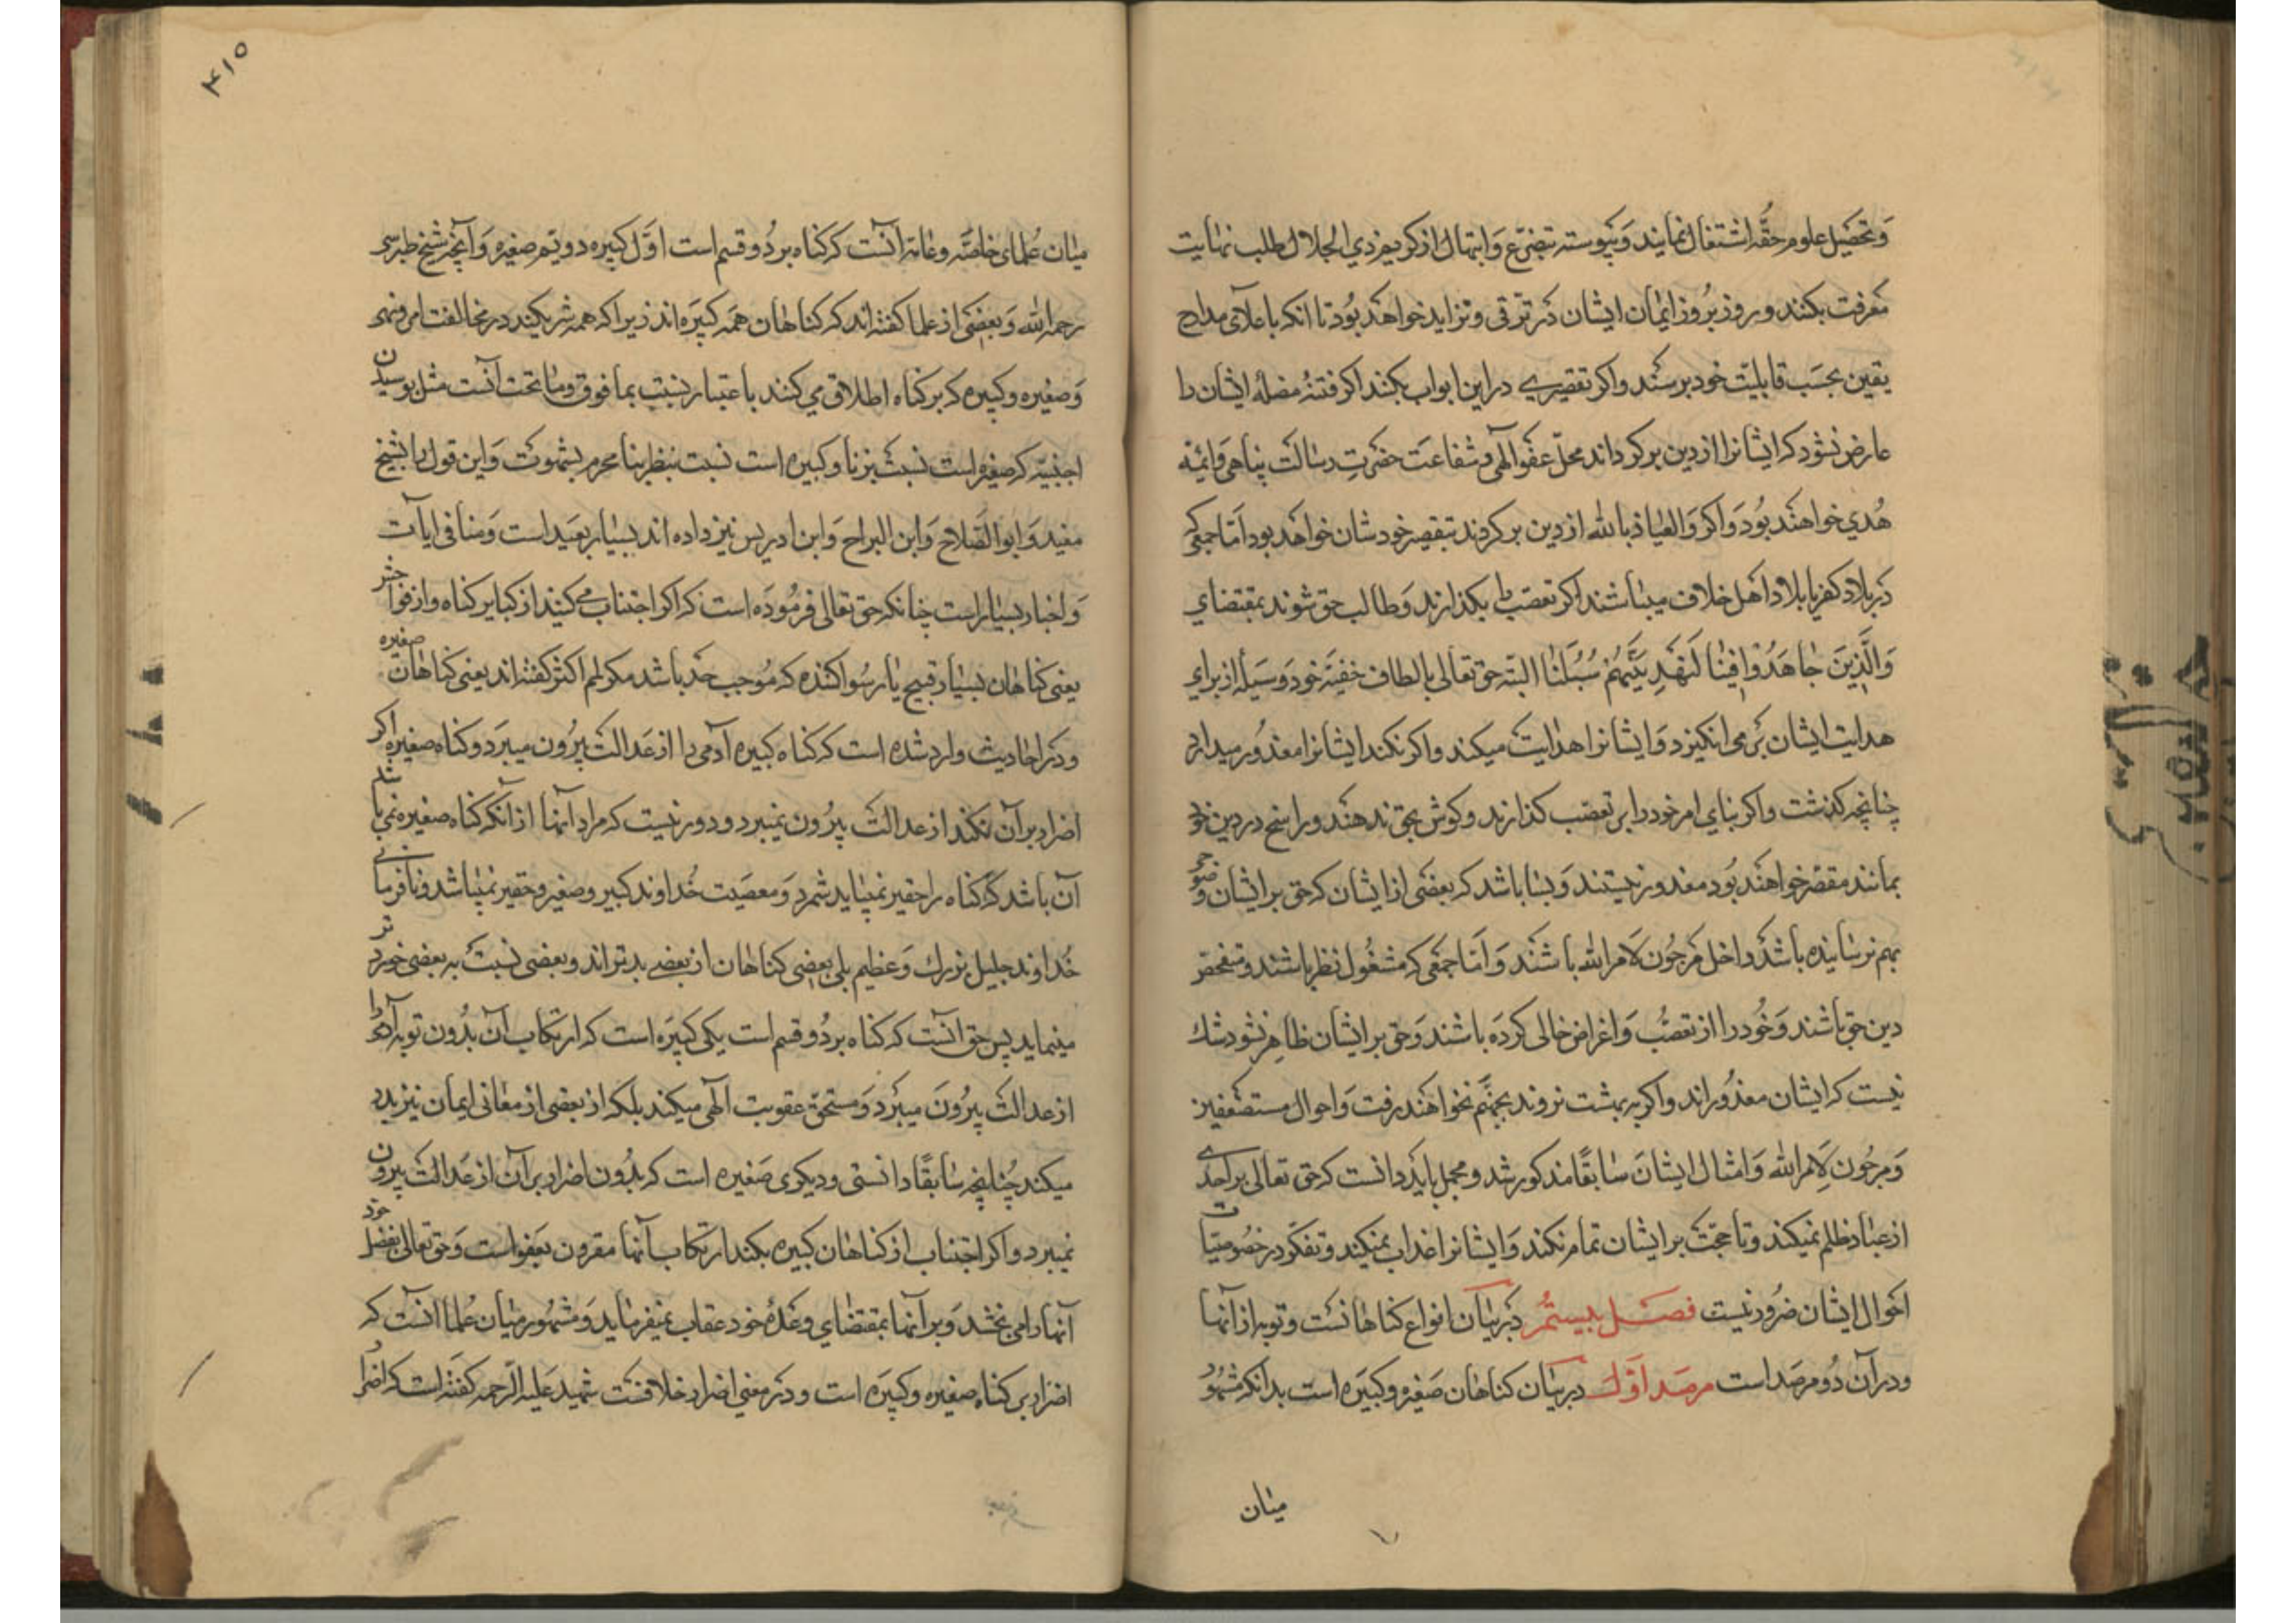 وتحصیل علوم حقّه اشتغال نمایند وپیوسته بتضرّع وابتهال ازکریم ذی الجلال طلب نهایت
معرفت بکنند وروز بروز ایمان ایشان در ترقی وتزاید خواهد بود تا انکه باعلای مدارج
یقین بحسب قابلیّت خود برسند واکر تقصیری دراین ابواب بکنند اکر فتنهٔ مضلهٔ ایشان را
عارض نشود که ایشانرا ازدین برکرداند محلّ عفو الٓهی وشفاعت حضرت رسالت پناهی وائمه
هُدی خواهند بود واکر والعیاذ بالله ازدین برکردند بتقصیر خودشان خواهد بود امّا جمعی که
در بلاد کفر یا بلاد اهل خلاف میباشند اکر تعصّب را بکذارند وطالب حق شوند بمقتضای
وَالَّذِینَ جاهَدُوا فِینا لَنَهْدِیَنَّهُمْ سُبُلَنا البتّه حق تعالی بالطاف خفیّهٔ خود وسیله از برای
هدایت ایشان برمی انکیزد وایشانرا هدایت میکند واکر نکند ایشانرا معذور میدارد
چنانچه کذشت واکر بنای امر خود را بر تعصّب کذارند وکوش بحق ندهند وراسخ در دین خود
بمانند مقصّر خواهند بود معذور نیستند وبسا باشد که بعضی ازایشان که حق برایشان وضوحی
بهم نرسانیده باشد داخل مرجون لامر الله باشند وامّا جمعی که مشغول نظر باشند ومتفحّص
دین حق باشند وخود را ازتعصّب واغراض خالی کرده باشند وحق برایشان ظاهر نشود شك
نیست که ایشان معذوراند واکر به بهشت نروند بجهنّم نخواهند رفت واحوال مستضعفین
ومرجون لامر الله وامثال ایشان سابقًا مذکور شد ومجمل باید دانست که حق تعالی براحدی
ازعباد ظلم نمیکند وتا حجّت برایشان تمام نکند وایشانرا عذاب نمیکند وتفکّر در خصوصیّات
احوال ایشان ضرور نیست فصل بیستم در بیان انواع کناهانست وتوبه از آنها
ودرآن دو مرصد است مرصد اوّل در بیان کناهان صغیره وکبیره است بدانکه مشهور
میان
۴۱۵
میان عُلمای خاصّه وعامّه آنست که کناه بر دو قسم است اوّل کبیره دویّم صغیره وآنچه شیخ طبرسی
رحمه الله وبعضی ازعلما کفته اند که کناهان همه کبیره اند زیرا که همه شریکند در مخالفت امر ونهی
وصغیره وکبیره که برکناه اطلاق می کنند باعتبار نسبت بما فوق وما تحت آنست مثل بوسیدن
اجنبیّه که صغیره است نسبت بزنا وکبیره است نسبت بنظر بنا محرم بشهوت واین قول را بشیخ
مفید وابو الصّلاح وابن البراج وابن ادریس نیز داده اند بسیار بعید است ومنافی ایات
واخبار بسیار است چنانکه حق تعالی فرموده است که اکر اجتناب می کنید از کبایر کناه واز فواحش
یعنی کناهان بسیار قبیح یا رسوا کننده که موجب حد باشد مکر لمم اکثر کفته اند یعنی کناهان صغیره
ودر احادیث وارد شده است که کناه کبیره آدمی را ازعدالت بیرون میبرد وکناه صغیره اکر
اصرار برآن نکند ازعدالت بیرون نمیبرد ودور نیست که مراد آنها ازآنکه کناه صغیره نمی باشد
آن باشد که کناه را حقیر نمیباید شمرد ومعصیت خداوند کبیر وصغیر وحقیر نمیباشد ونافرمانی
خداوند جلیل بزرك وعظیم بلی بعضی کناهان از بعضی بدتراند وبعضی نسبت به بعضی خوردتر
مینماید پس حق آنست که کناه بر دو قسم است یکی کبیره است که ارتکاب آن بدون توبه آدمی را
ازعدالت بیرون میبرد ومستحقّ عقوبت الٓهی میکند بلکه از بعضی ازمعانی ایمان نیز بدر
میکند چنانچه سابقًا دانستی ودیکری صغیره است که بدون اصرار برآن ازعدالت بیرون
نمیبرد واکر اجتناب ازکناهان کبیره بکند ارتکاب آنها مقرون بعفو است وحق تعالی بفضل خود
آنها را می بخشد وبر آنها بمقتضای وعدهٔ خود عقاب نمیفرماید ومشهور میان علما آنست که
اصرار بر کناه صغیره وکبیره است ودر معنی اصرار خلافست شهید علیه الرحمه کفته است که اصرار